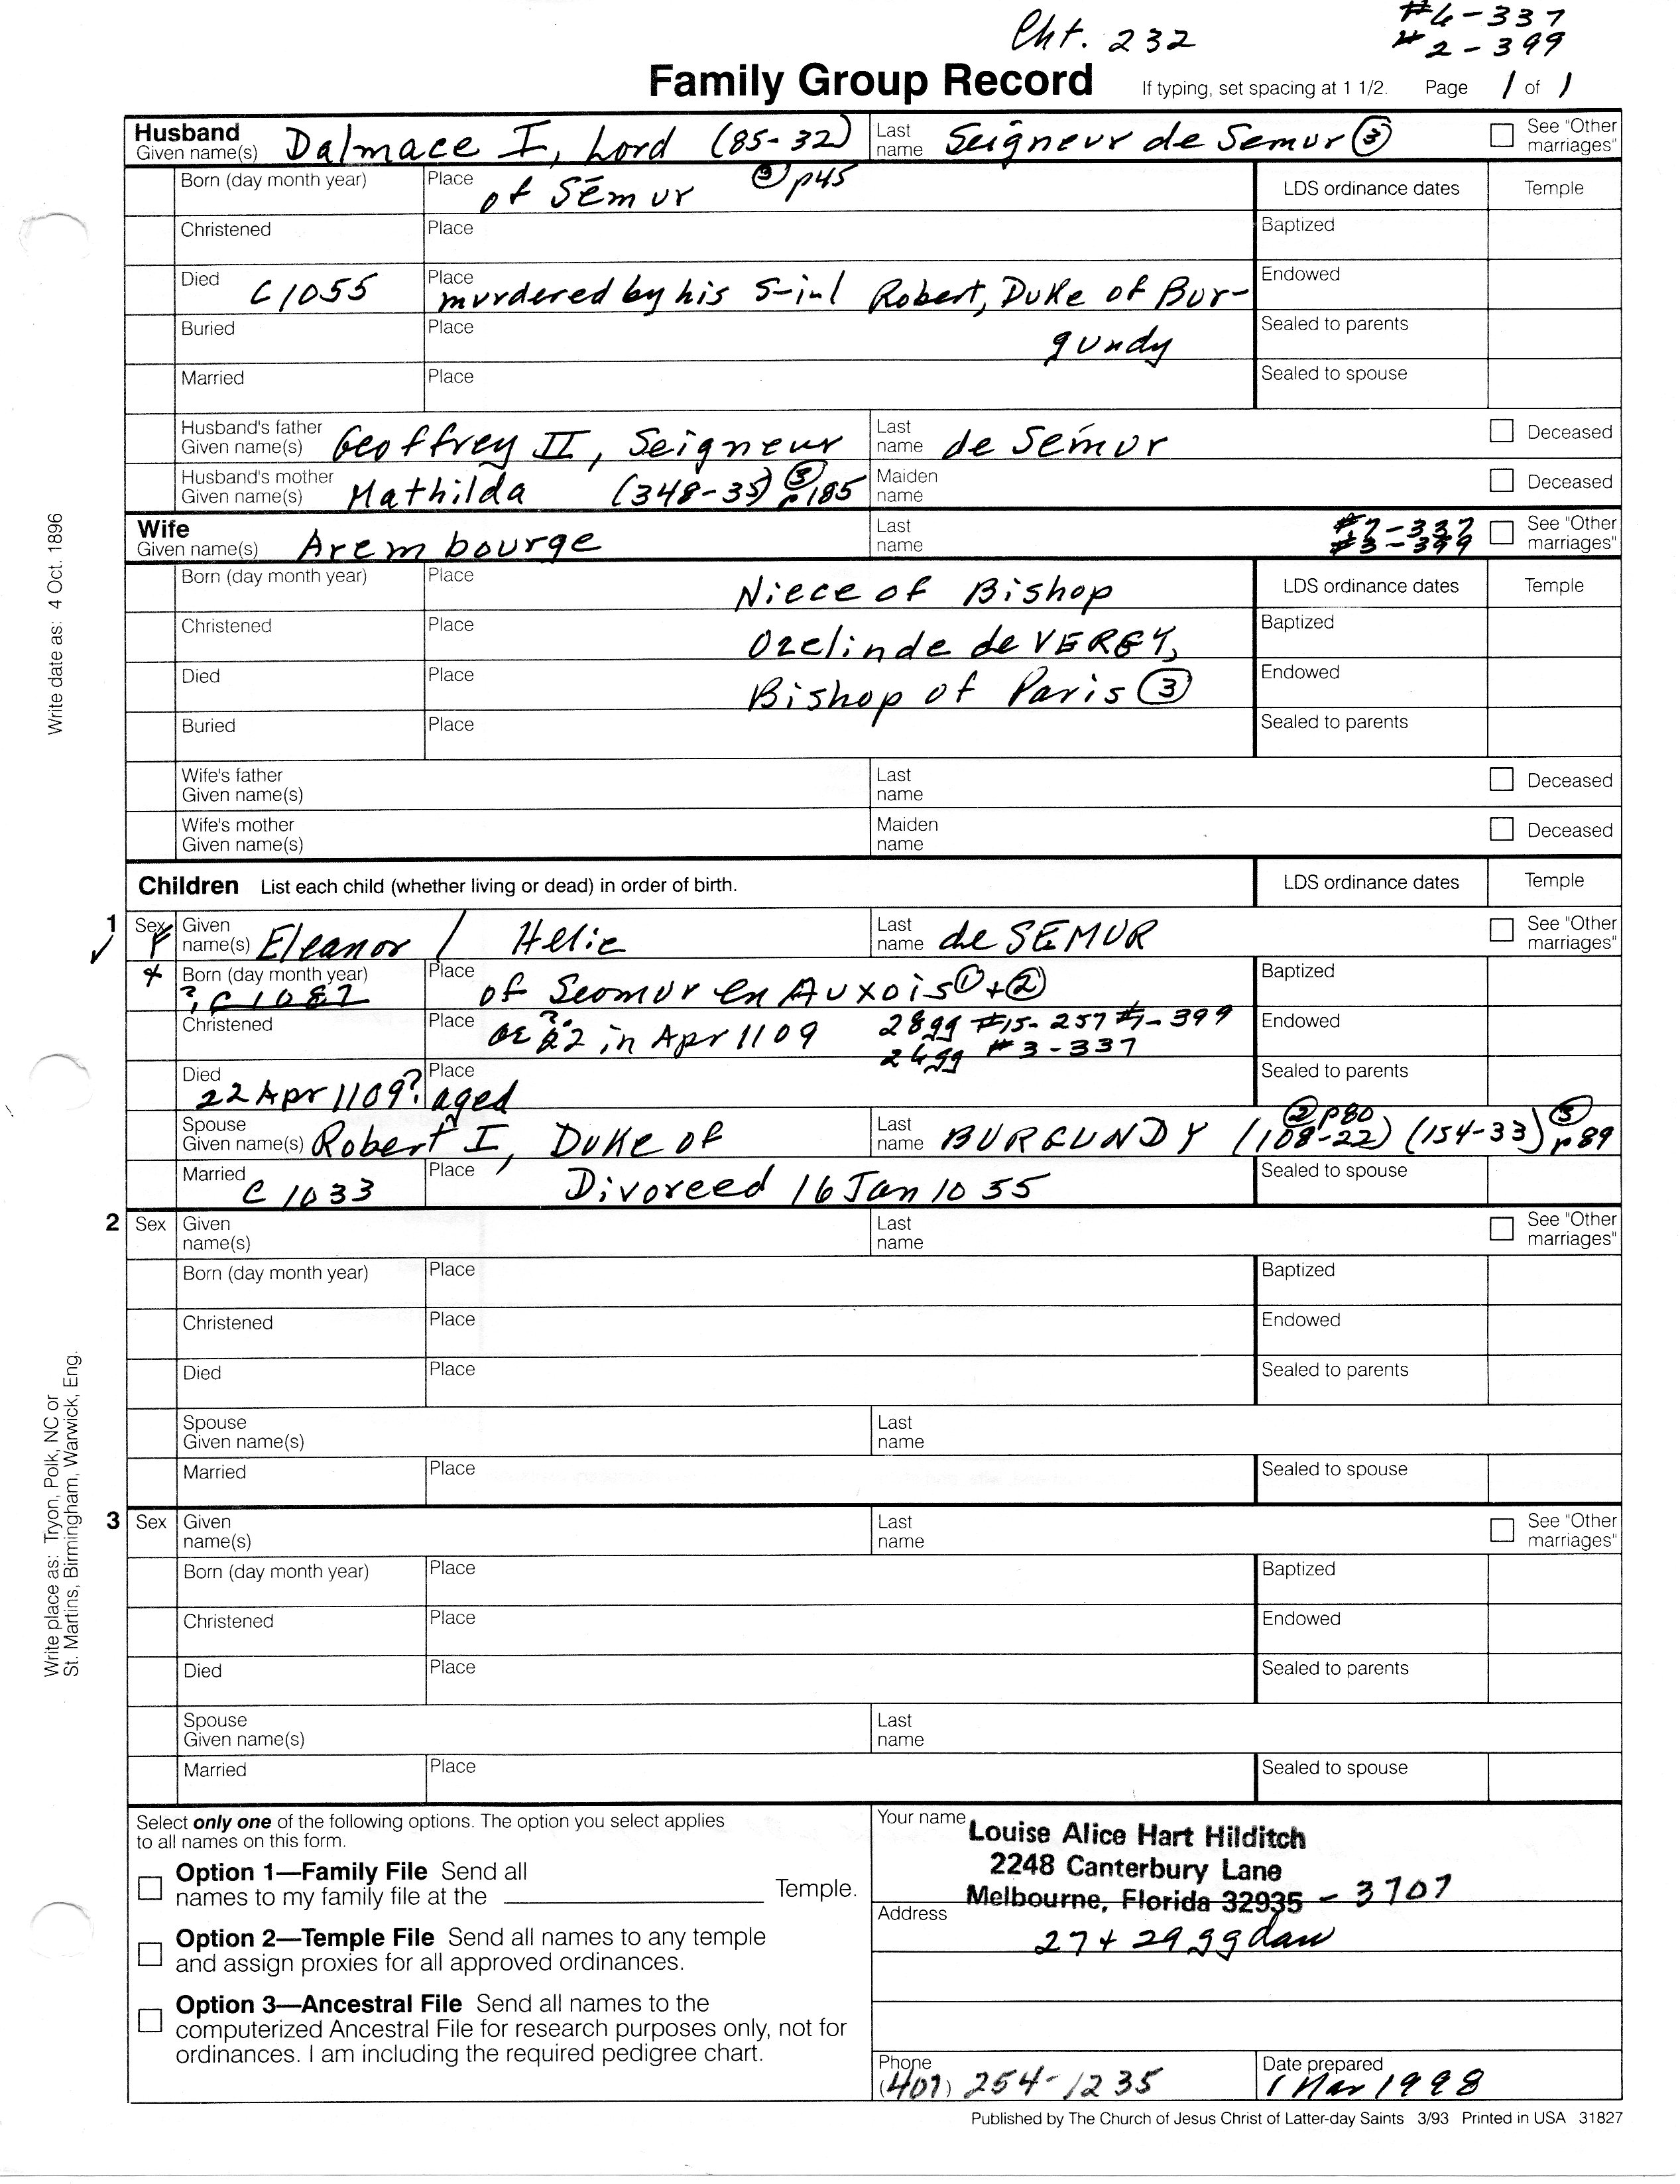 Cht. 232
#6-337
#2-399
Family Group Record If typing, set spacing at 1 1/2. Page 1 of 1
Husband
Given name(s) Dalmace I, Lord (85-32) Last name Seigneur de Semur ③ See "Other marriages"
Born (day month year) Place of Sémur ③ p45 LDS ordinance dates Temple
Christened Place Baptized
Died C1055 Place murdered by his S-inl Robert, Duke of Bur- Endowed
Buried Place gundy Sealed to parents
Married Place Sealed to spouse
Husband's father
Given name(s) Geoffrey II, Seigneur Last name de Sémur Deceased
Husband's mother
Given name(s) Mathilda (348-35) ③ p185 Maiden name Deceased
Wife
Given name(s) Arembourge Last name #7-337 #3-399 See "Other marriages"
Born (day month year) Place Niece of Bishop LDS ordinance dates Temple
Christened Place Ozelinde de VERGY, Baptized
Died Place Bishop of Paris ③ Endowed
Buried Place Sealed to parents
Wife's father
Given name(s) Last name Deceased
Wife's mother
Given name(s) Maiden name Deceased
Children List each child (whether living or dead) in order of birth. LDS ordinance dates Temple
1 Sex F Given name(s) Eleanor / Helie Last name de SEMUR See "Other marriages"
Born (day month year) ? C 1087 Place of Seomur en AUXOis ① + ② Baptized
Christened Place or ?22 in Apr 1109 28gg #15-257 #1-399 Endowed
26gg #3-337
Died 22 Apr 1109? Place aged Sealed to parents
Spouse
Given name(s) Robert I, Duke of Last name BURGUNDY (108-22) ② p80 (154-33) ③ p89
Married C 1033 Place Divorced 16 Jan 1055 Sealed to spouse
2 Sex Given name(s) Last name See "Other marriages"
Born (day month year) Place Baptized
Christened Place Endowed
Died Place Sealed to parents
Spouse
Given name(s) Last name
Married Place Sealed to spouse
3 Sex Given name(s) Last name See "Other marriages"
Born (day month year) Place Baptized
Christened Place Endowed
Died Place Sealed to parents
Spouse
Given name(s) Last name
Married Place Sealed to spouse
Select only one of the following options. The option you select applies
to all names on this form.
Option 1—Family File Send all
names to my family file at the Temple.
Option 2—Temple File Send all names to any temple
and assign proxies for all approved ordinances.
Option 3—Ancestral File Send all names to the
computerized Ancestral File for research purposes only, not for
ordinances. I am including the required pedigree chart.
Your name Louise Alice Hart Hilditch
2248 Canterbury Lane
Melbourne, Florida 32935 - 3707
Address
27 + 29 gg dau
Phone (407) 254-1235
Date prepared 1 Mar 1998
Published by The Church of Jesus Christ of Latter-day Saints 3/93 Printed in USA 31827
Write date as: 4 Oct. 1896
Write place as: Tryon, Polk, NC or
St. Martins, Birmingham, Warwick, Eng.